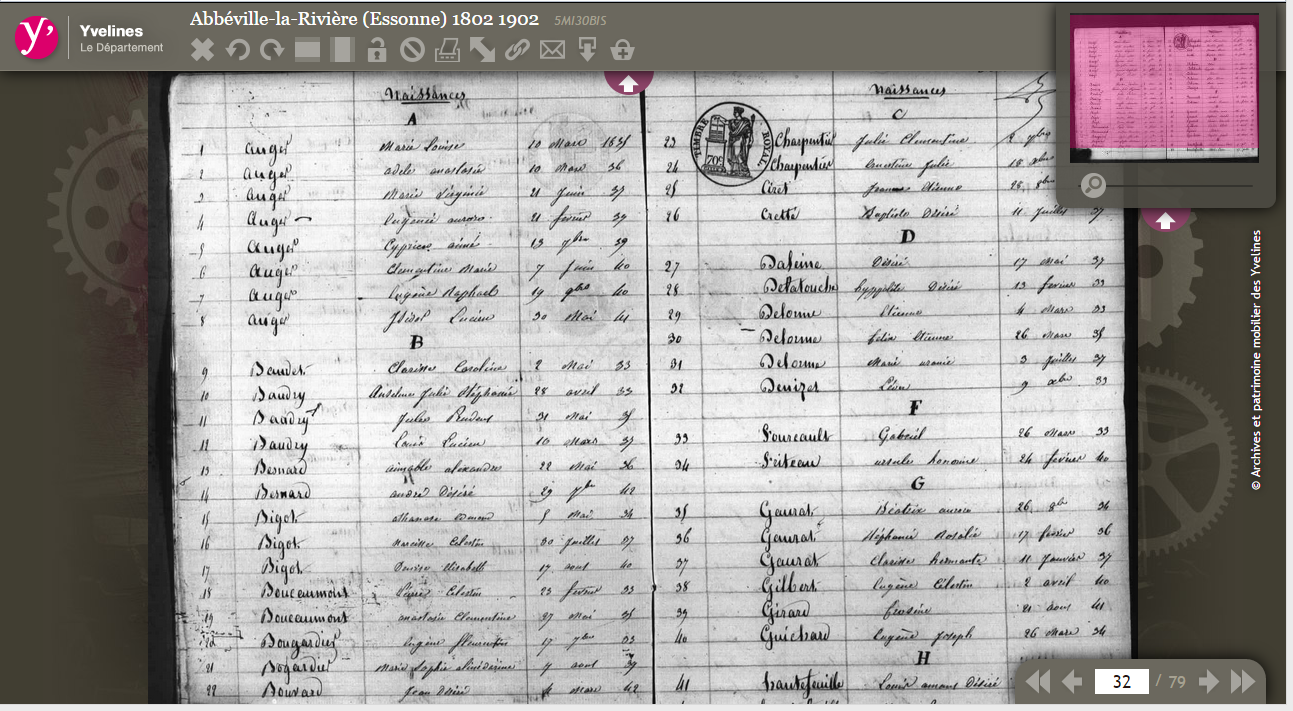 Abbéville-la-Rivière (Essonne) 1802 1902 5MI30BIS
Yvelines
Le Département
Naissances
A
1 Auger Marie Louise 10 Mars 1835
2 Auger adele anastasie 10 Mars 36
3 Auger Marie Virginie 21 Juin 37
4 Auger Eugenie aurore 21 fevrier 39
5 Auger Cyprien aimé 13 7bre 39
6 Auger Clementine Marie 7 Juin 40
7 Auger Eugène Raphael 19 9bre 40
8 Auger Isidor Lucien 30 Mai 41
B
9 Baudet Clarisse Caroline 2 Mai 33
10 Baudry Anselme Julie Stéphanie 28 avril 33
11 Baudry Jules Prudent 31 Mai 35
12 Baudry Louis Lucien 10 Mars 37
13 Besnard aimable alexandre 22 Mai 36
14 Besnard andré Désiré 29 7bre 42
15 Bigot athanase 5 Mai 34
16 Bigot Narcisse Celestin 30 Juillet 37
17 Bigot Denise Elisabeth 17 aout 40
18 Bouceaumont Celestin 23 fevrier 33
19 Bouceaumont anastasie Clementine 27 Mai 35
20 Bougardier Eugène florentin 17 7bre 33
21 Bogardier Marie Sophie 7 aout 39
22 Bouvard Jean Désiré Mars 42
Naissances
C
TIMBRE ROYAL
70c
23 Charpentier Julie Clementine 2 7bre
24 Charpentier Ernestine Julie 18 xbre
25 Ciret Etienne 28 8bre
26 Cretté Baptiste Désiré 11 Juillet 37
D
27 Daleine Désiré 17 Mai 37
28 Delatouche hyppolite Désiré 13 fevrier 33
29 Delorme Etienne 4 Mars 33
30 Delorme felix Etienne 26 Mars 35
31 Delorme Marie uranie 3 Juillet 37
32 Denizet Léon 9 xbre 33
F
33 Fourcault Gabriel 26 Mars 33
34 Friteau ursule honorine 24 fevrier 40
G
35 Gaurat Béatrix aurore 26 8bre 34
36 Gaurat Stéphanie Rosalie 17 fevrier 36
37 Gaurat Clarisse hermante 11 Janvier 37
38 Gilbert Eugène Célestin 2 avril 40
39 Girard 21 aout 41
40 Guichard Eugène Joseph 26 Mars 34
H
41 hautefeuille Louis amant Désiré
© Archives et patrimoine mobilier des Yvelines
32 / 79